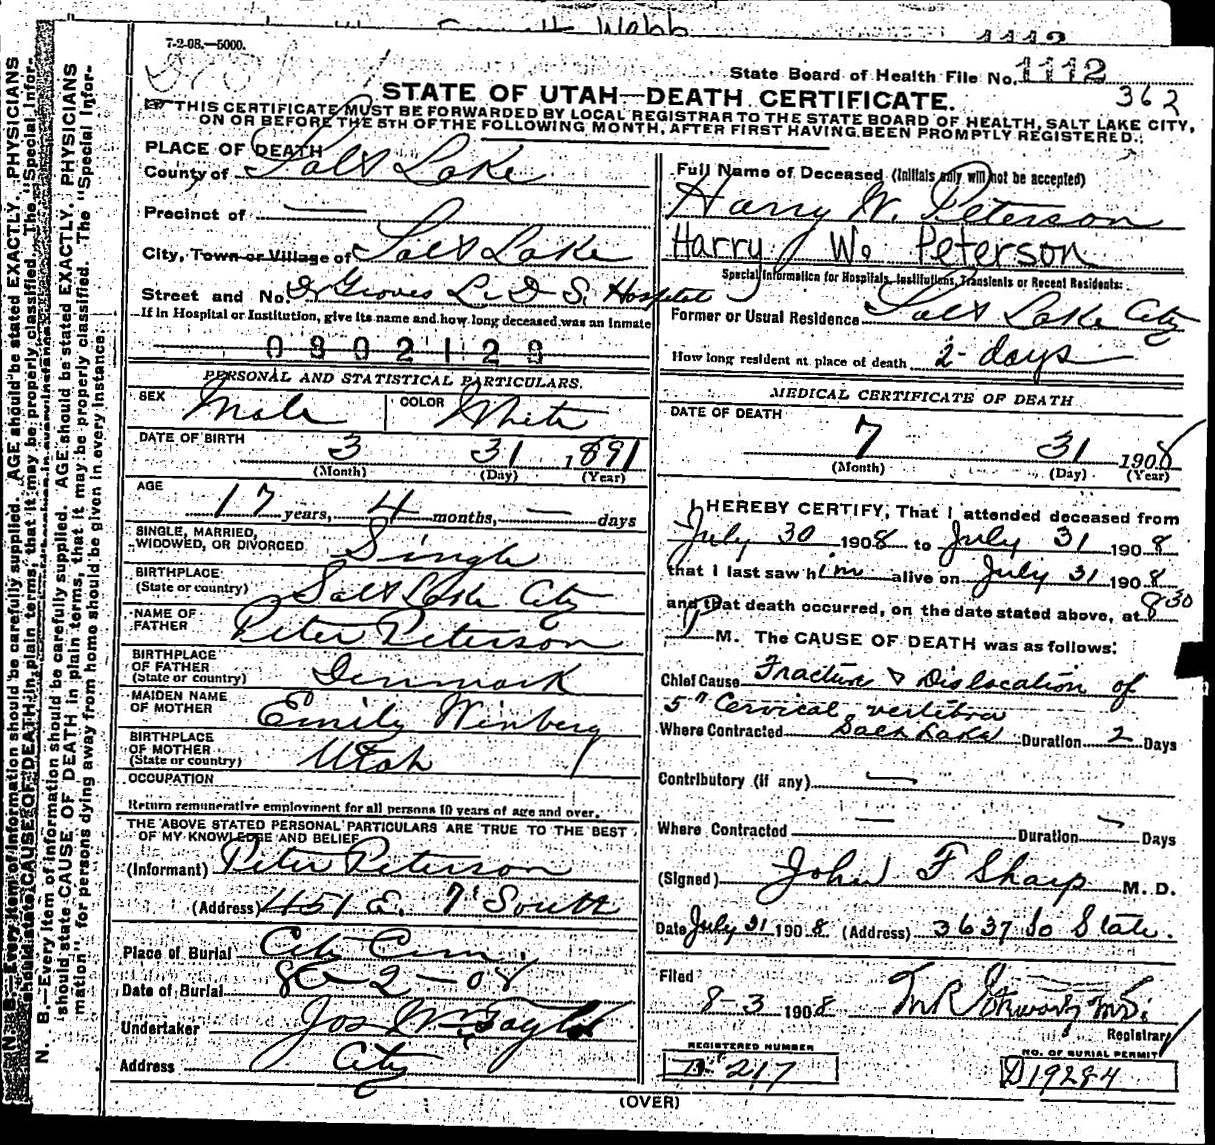 Webb
1112
7-2-08.—5000.
State Board of Health File No. 1112
362
STATE OF UTAH—DEATH CERTIFICATE.
THIS CERTIFICATE MUST BE FORWARDED BY LOCAL REGISTRAR TO THE STATE BOARD OF HEALTH, SALT LAKE CITY,
ON OR BEFORE THE 5TH OF THE FOLLOWING MONTH, AFTER FIRST HAVING BEEN PROMPTLY REGISTERED.
PLACE OF DEATH
County of Salt Lake
Precinct of —
City, Town or Village of Salt Lake
Street and No. Dr Groves L. D. S. Hospital
If in Hospital or Institution, give its name and how long deceased was an inmate
Full Name of Deceased (Initials only will not be accepted)
Harry W. Peterson
Harry W. Peterson
Special Information for Hospitals, Institutions, Transients or Recent Residents:
Former or Usual Residence Salt Lake City
How long resident at place of death 2 days
PERSONAL AND STATISTICAL PARTICULARS.
SEX Male COLOR White
DATE OF BIRTH
3 31 1891
(Month) (Day) (Year)
AGE
17 years, 4 months, — days
SINGLE, MARRIED,
WIDOWED, OR DIVORCED Single
BIRTHPLACE
(State or country) Salt Lake City
NAME OF
FATHER Peter Peterson
BIRTHPLACE
OF FATHER
(State or country) Denmark
MAIDEN NAME
OF MOTHER Emily Winberg
BIRTHPLACE
OF MOTHER
(State or country) Utah
OCCUPATION
Return remunerative employment for all persons 10 years of age and over.
THE ABOVE STATED PERSONAL PARTICULARS ARE TRUE TO THE BEST
OF MY KNOWLEDGE AND BELIEF
(Informant) Peter Peterson
(Address) 451 E. 7' South
Place of Burial City Cem.
Date of Burial 8-2-08
Undertaker Jos W. Taylor
Address City
MEDICAL CERTIFICATE OF DEATH
DATE OF DEATH
7 31 1908
(Month) (Day) (Year)
I HEREBY CERTIFY, That I attended deceased from
July 30 1908 to July 31 1908
that I last saw him alive on July 31 1908
and that death occurred, on the date stated above, at 8 30
P M. The CAUSE OF DEATH was as follows:
Chief Cause Fracture & Dislocation of
5" Cervical vertebra
Where Contracted Salt Lake Duration 2 Days
Contributory (if any) —
Where Contracted — Duration — Days
(Signed) John F Sharp M. D.
Date July 31 1908 (Address) 3637 So State.
Filed
8-3 1908
Registrar
REGISTERED NUMBER
D 217
NO. OF BURIAL PERMIT
D19284
(OVER)
N. B.—Every item of information should be carefully supplied. AGE should be stated EXACTLY. PHYSICIANS
should state CAUSE OF DEATH in plain terms, that it may be properly classified. The "Special Infor-
mation" for persons dying away from home should be given in every instance.
N. B.—Every item of information should be carefully supplied. AGE should be stated EXACTLY. PHYSICIANS
should state CAUSE OF DEATH in plain terms, that it may be properly classified. The "Special Infor-